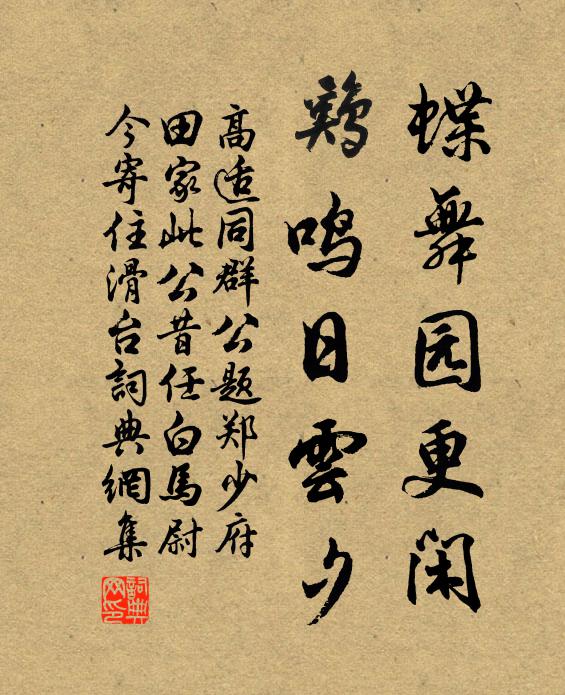 蝶舞园更闲
鷄鸣日雲夕
高适同群公题郑少府
田家此公昔任白馬尉
今寄住滑台詞典網集
詞典网印